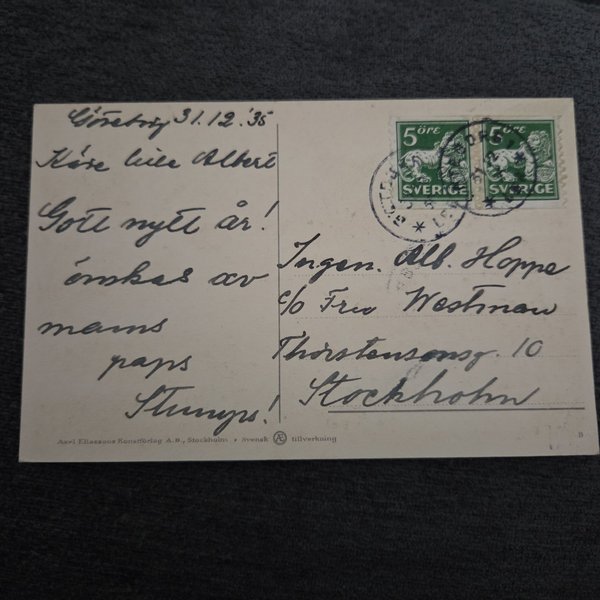 Göteborg 31.12.'35
Käre lille Albert
Gott nytt år!
önskas av
mams
paps
Stumps!
5 ÖRE
SVERIGE
5 ÖRE
SVERIGE
GÖTEBORG 1
Ingen. Alb. Hoppe
c/o Fru Westman
Thorstensonsg. 10
Stockholm
Axel Eliassons Konstförlag A.B., Stockholm • Svensk Æ tillverkning
B